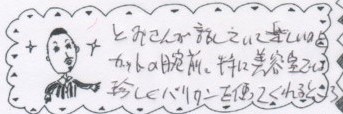 とみさんが話していて楽しいのと
カットの腕前。特に美容室では
珍しくバリカンを使ってくれるところ